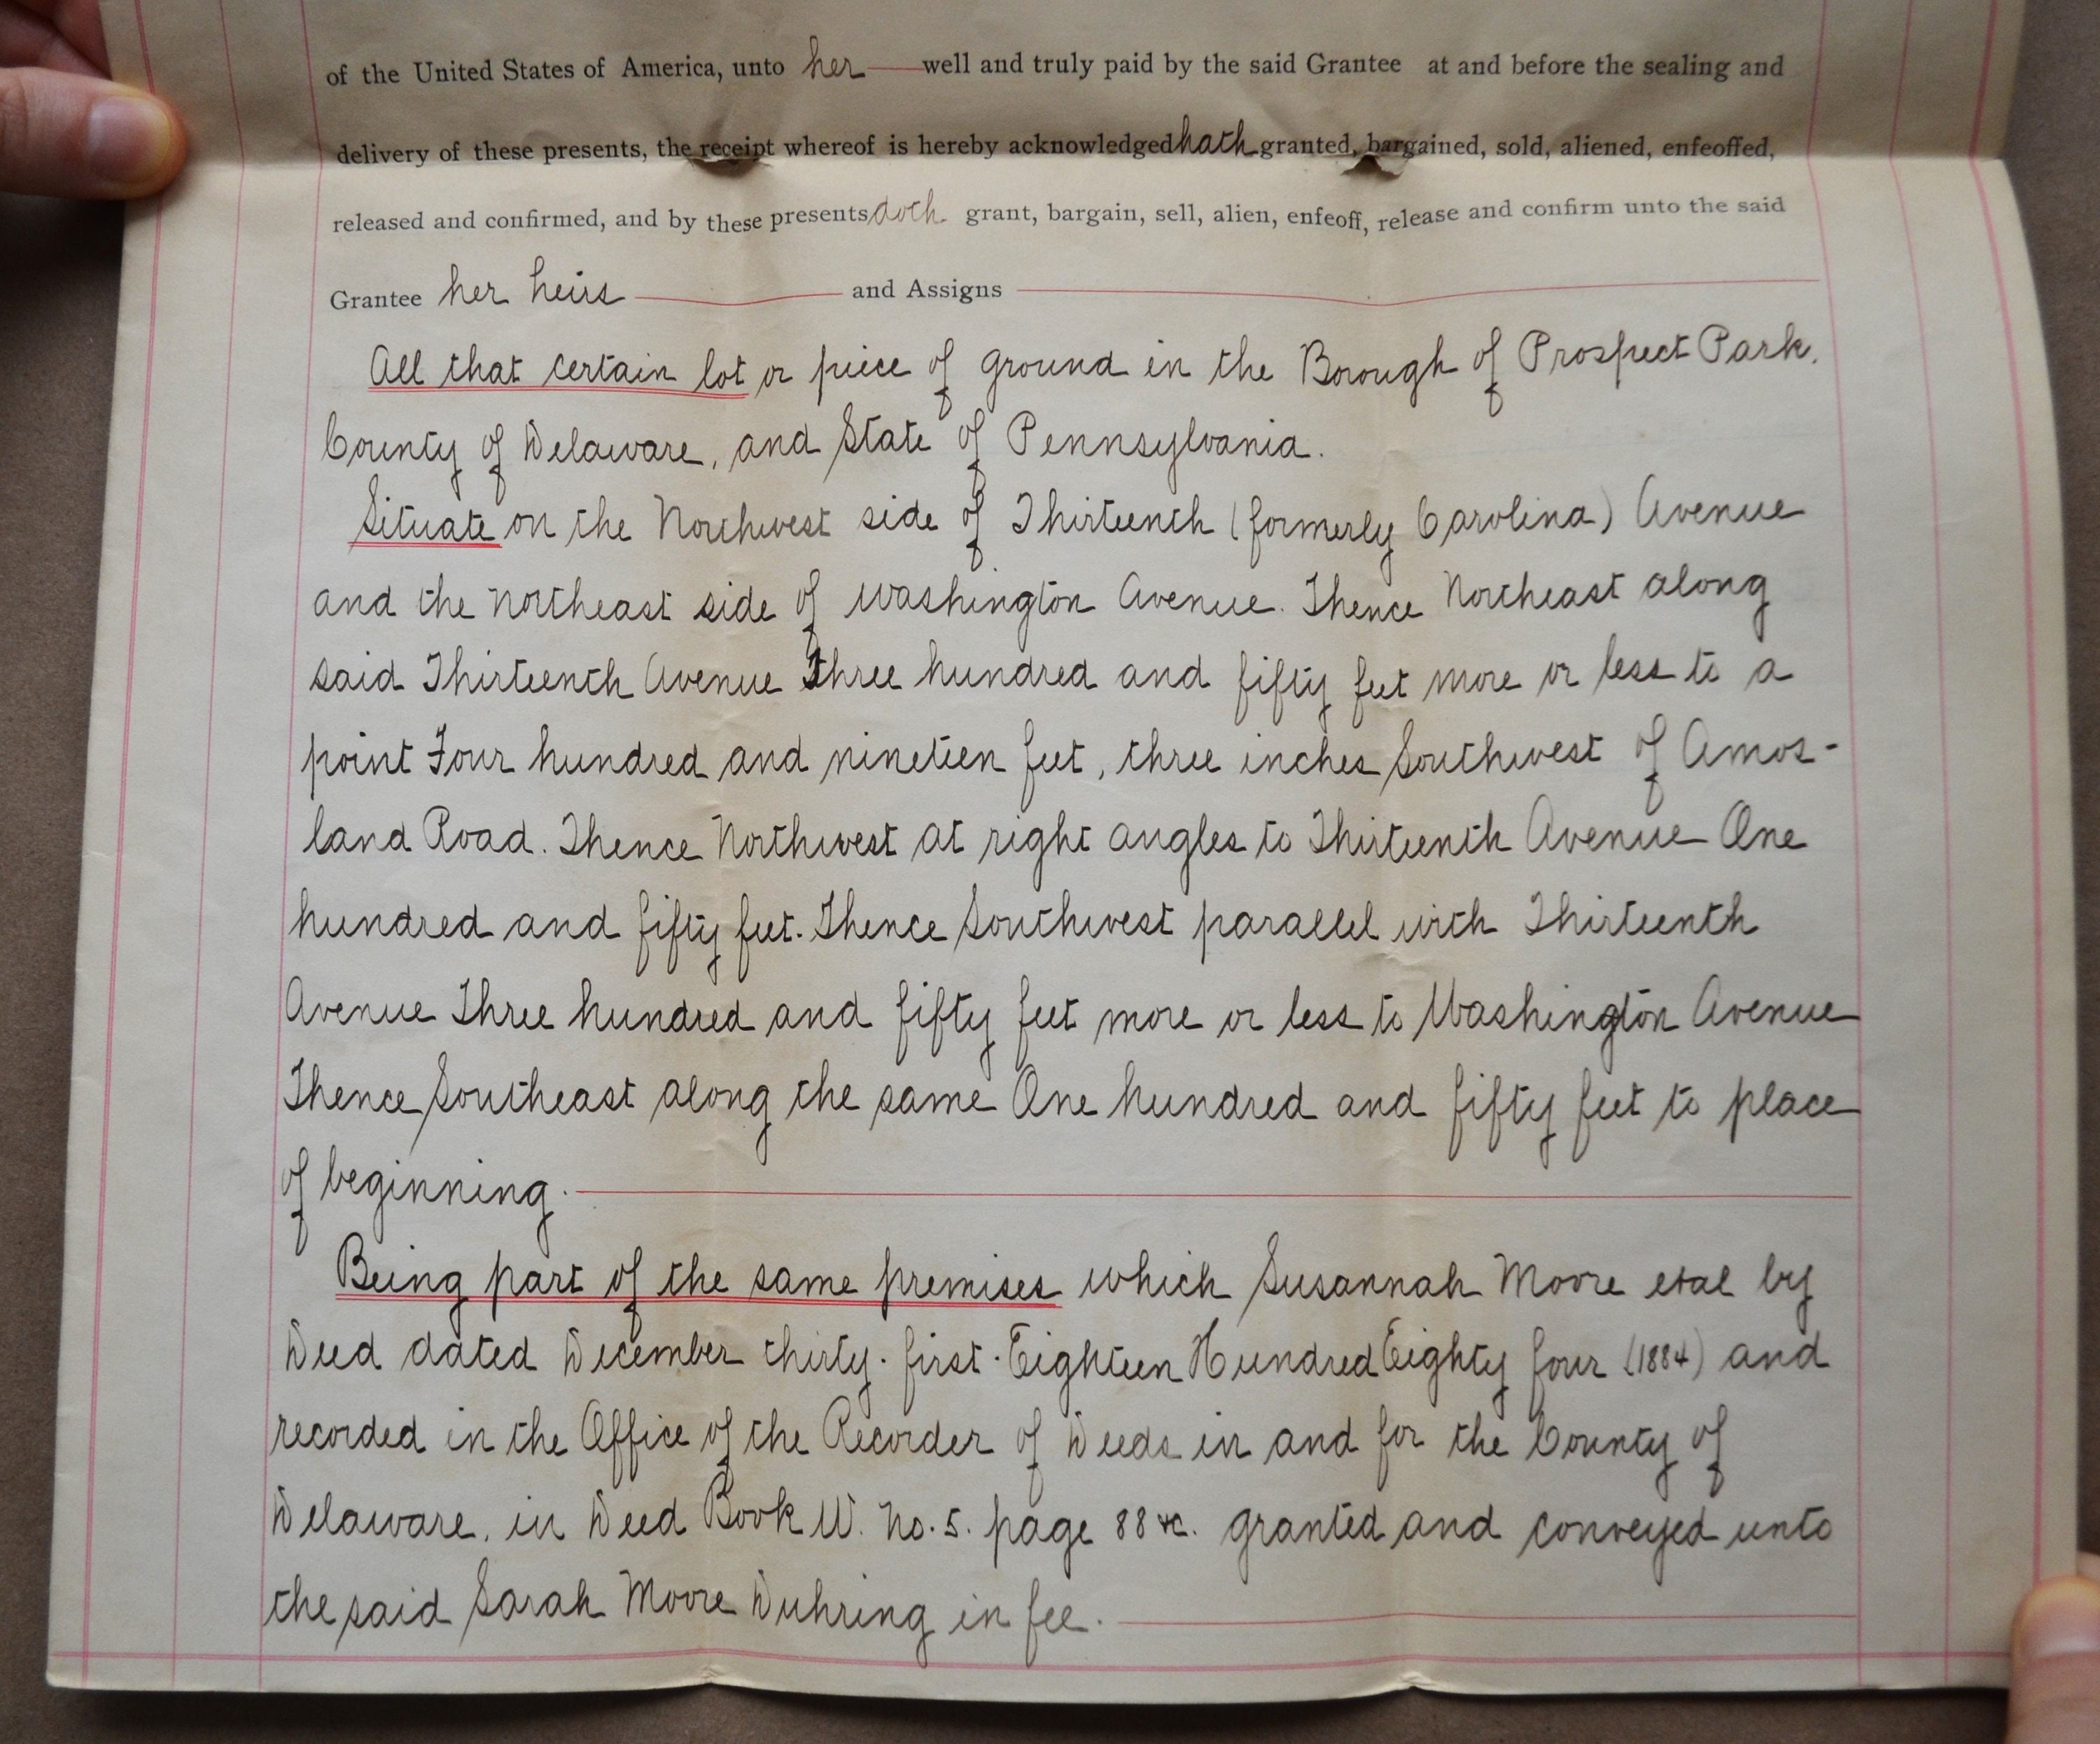 of the United States of America, unto her well and truly paid by the said Grantee at and before the sealing and
delivery of these presents, the receipt whereof is hereby acknowledged hath granted, bargained, sold, aliened, enfeoffed,
released and confirmed, and by these presents doth grant, bargain, sell, alien, enfeoff, release and confirm unto the said
Grantee her heirs and Assigns
All that certain lot or piece of ground in the Borough of Prospect Park,
County of Delaware, and State of Pennsylvania.
Situate on the Northwest side of Thirteenth (formerly Carolina) Avenue
and the Northeast side of Washington Avenue. Thence Northeast along
said Thirteenth Avenue Three hundred and fifty feet more or less to a
point Four hundred and nineteen feet, three inches Southwest of Amos-
land Road. Thence Northwest at right angles to Thirteenth Avenue One
hundred and fifty feet. Thence Southwest parallel with Thirteenth
Avenue Three hundred and fifty feet more or less to Washington Avenue
Thence Southeast along the same One hundred and fifty feet to place
of beginning.
Being part of the same premises which Susannah Moore etal by
Deed dated December thirty-first-Eighteen Hundred Eighty four (1884) and
recorded in the Office of the Recorder of Deeds in and for the County of
Delaware, in Deed Book W. No. 5. page 88 &c. granted and conveyed unto
the said Sarah Moore Duhring in fee.